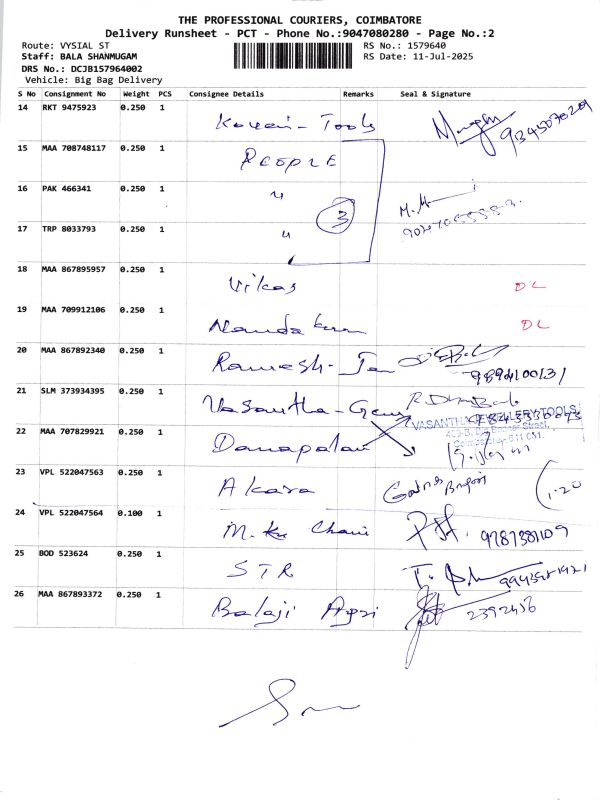 THE PROFESSIONAL COURIERS, COIMBATORE
Delivery Runsheet - PCT - Phone No.:9047080280 - Page No.:2
Route: VYSIAL ST RS No.: 1579640
Staff: BALA SHANMUGAM RS Date: 11-Jul-2025
DRS No.: DCJB157964002
Vehicle: Big Bag Delivery
S No Consignment No Weight PCS Consignee Details Remarks Seal & Signature
14 RKT 9475923 0.250 1 Tools
15 MAA 708748117 0.250 1 PEOPLE
16 PAK 466341 0.250 1 " 3
17 TRP 8033793 0.250 1 "
18 MAA 867895957 0.250 1 Vikas DL
19 MAA 709912106 0.250 1 Nandakumar DL
20 MAA 867892340 0.250 1 Ramesh 9894100131
21 SLM 373934395 0.250 1 Vasantha-
VASANTHA JEWELLERY TOOLS
22 MAA 707829921 0.250 1 Danapalan
23 VPL 522047563 0.250 1 Akara 1.20
24 VPL 522047564 0.100 1 9787381109
25 BOD 523624 0.250 1 STR
26 MAA 867893372 0.250 1 Balaji Agri 2392456